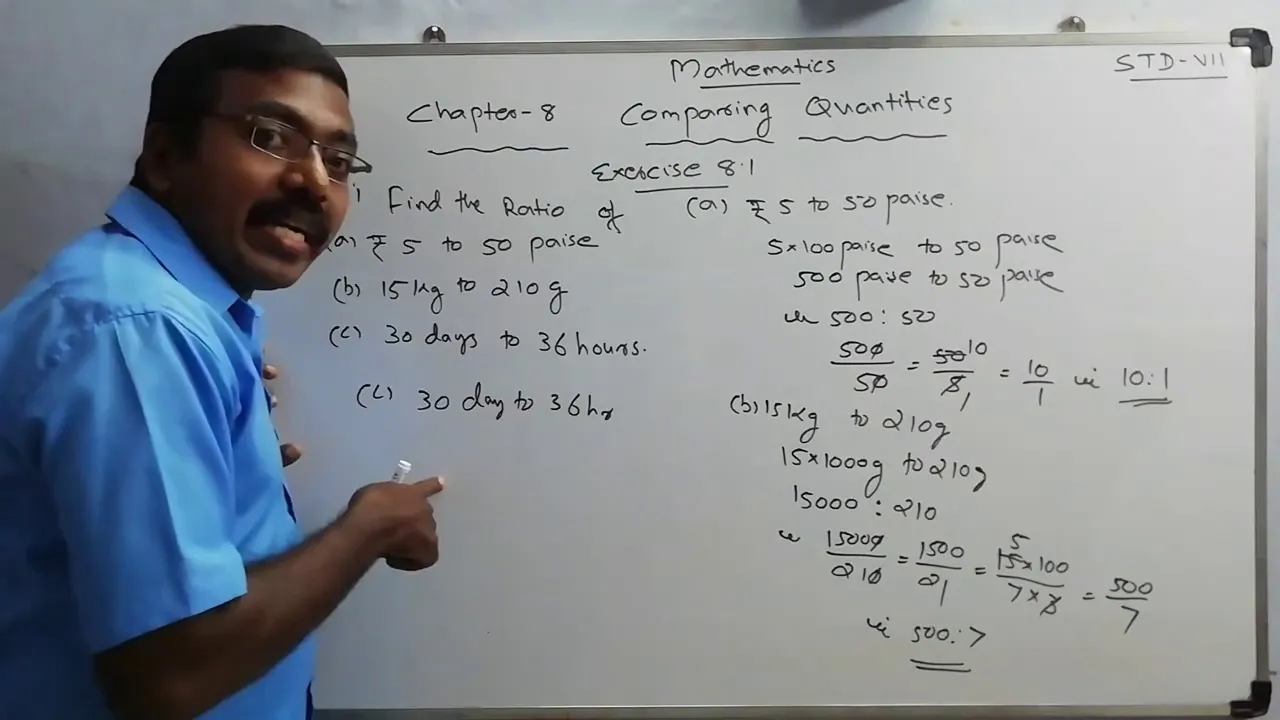 Mathematics
STD-VII
Chapter-8 Comparing Quantities
Exercise 8.1
1 Find the Ratio of
(a) ₹ 5 to 50 paise
(b) 15 kg to 210 g
(c) 30 days to 36 hours.
(c) 30 day to 36 hr
(a) ₹ 5 to 50 paise.
5×100 paise to 50 paise
500 paise to 50 paise
ie 500 : 50
500/50 = 50/5 10/1 = 10/1 ie 10:1
(b) 15 kg to 210g
15×1000g to 210g
15000 : 210
ie 15000/210 = 1500/21 = 15×100/7×3 5 = 500/7
ie 500:7